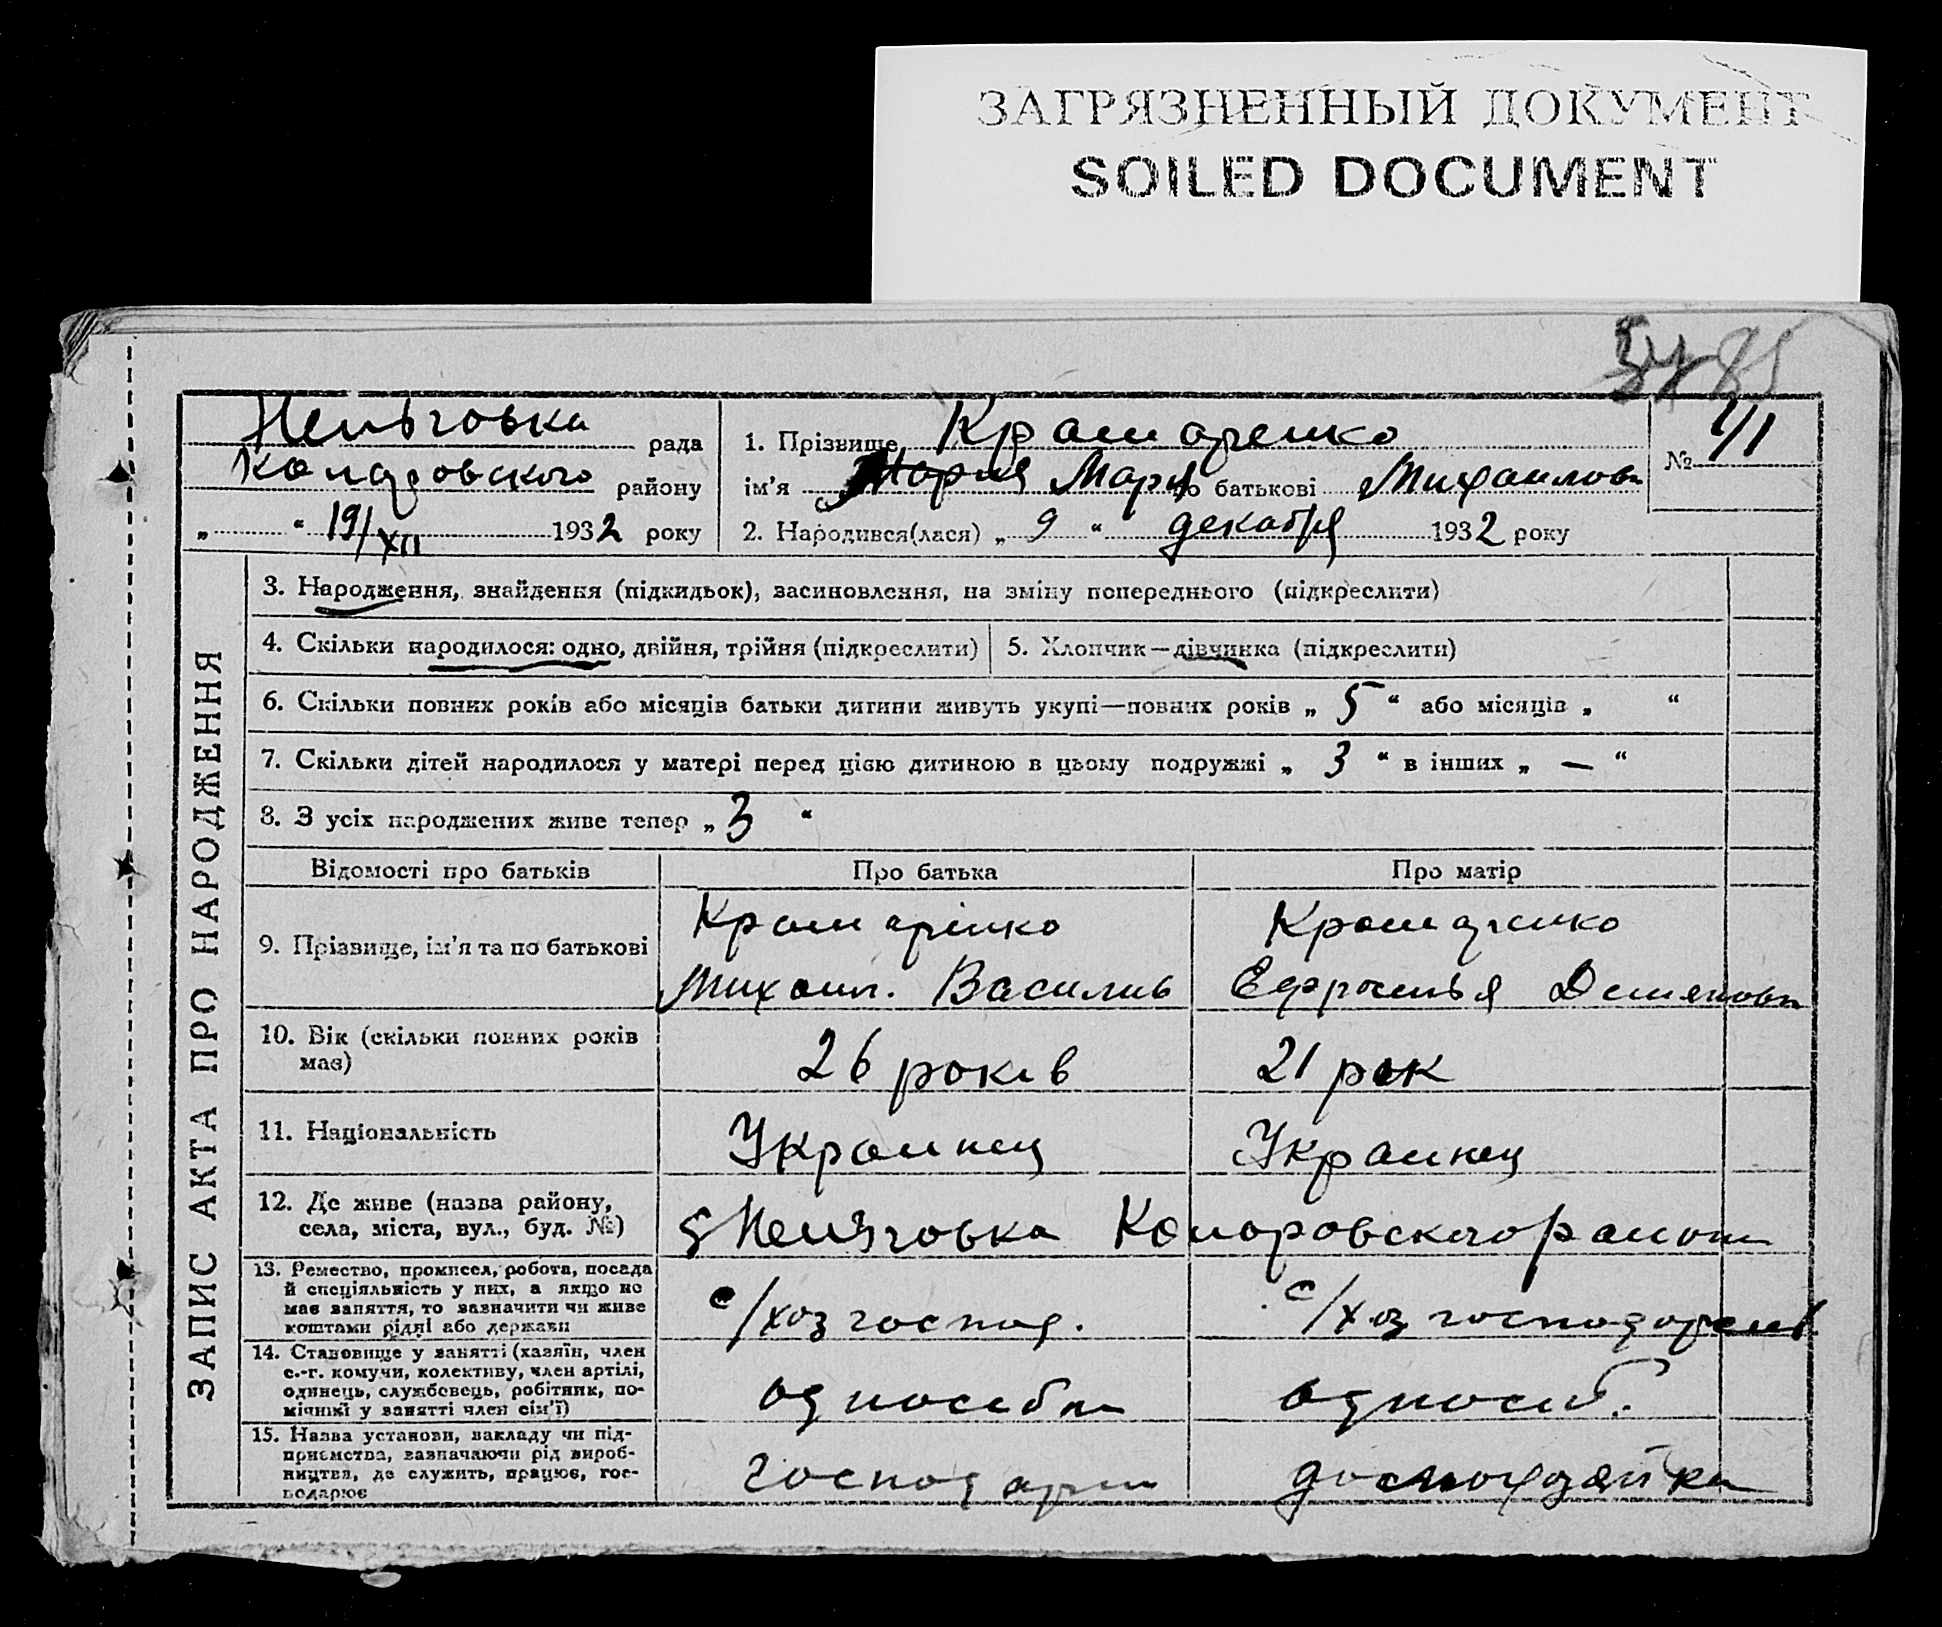 ЗАГРЯЗНЕННЫЙ ДОКУМЕНТ
SOILED DOCUMENT
85
рада
району
„ “ 19/XII 1932 року
1. Прізвище Крамаренко
ім'я Мария Мария по батькові Михаиловн
2. Народився(лася) „ 9 “ декабря 1932 року
№
ЗАПИС АКТА ПРО НАРОДЖЕННЯ
3. Народження, знайдення (підкидьок), засиновлення, на зміну попереднього (підкреслити)
4. Скільки народилося: одно, двійня, трійня (підкреслити)
5. Хлопчик—дівчинка (підкреслити)
6. Скільки повних років або місяців батьки дитини живуть укупі—повних років „ 5 “ або місяців „ “
7. Скільки дітей народилося у матері перед цією дитиною в цьому подружжі „ 3 “ в інших „ — “
8. З усіх народжених живе тепер „ 3 “
Відомості про батьків
Про батька
Про матір
9. Прізвище, ім'я та по батькові
Крамарінко
Михаил. Василив
Крамаренко
Демяновн
10. Вік (скільки повних років
має)
26 років
21 рок
11. Національність
Украинец
Украинец
12. Де живе (назва району,
села, міста, вул., буд. №)
13. Ремество, промисел, робота, посада
й спеціяльність у них, а якщо не
має заняття, то зазначити чи живе
коштами рідні або держави
с/хоз господ.
с/хоз
14. Становище у занятті (хазяїн, член
с.-г. комуни, колективу, член артілі,
одинець, службовець, робітник, по-
мічникі у занятті член сім'ї)
односиб.
15. Назва установи, закладу чи під-
приємства, зазначаючи рід вироб-
ництва, де служить, працює, гос-
подарює